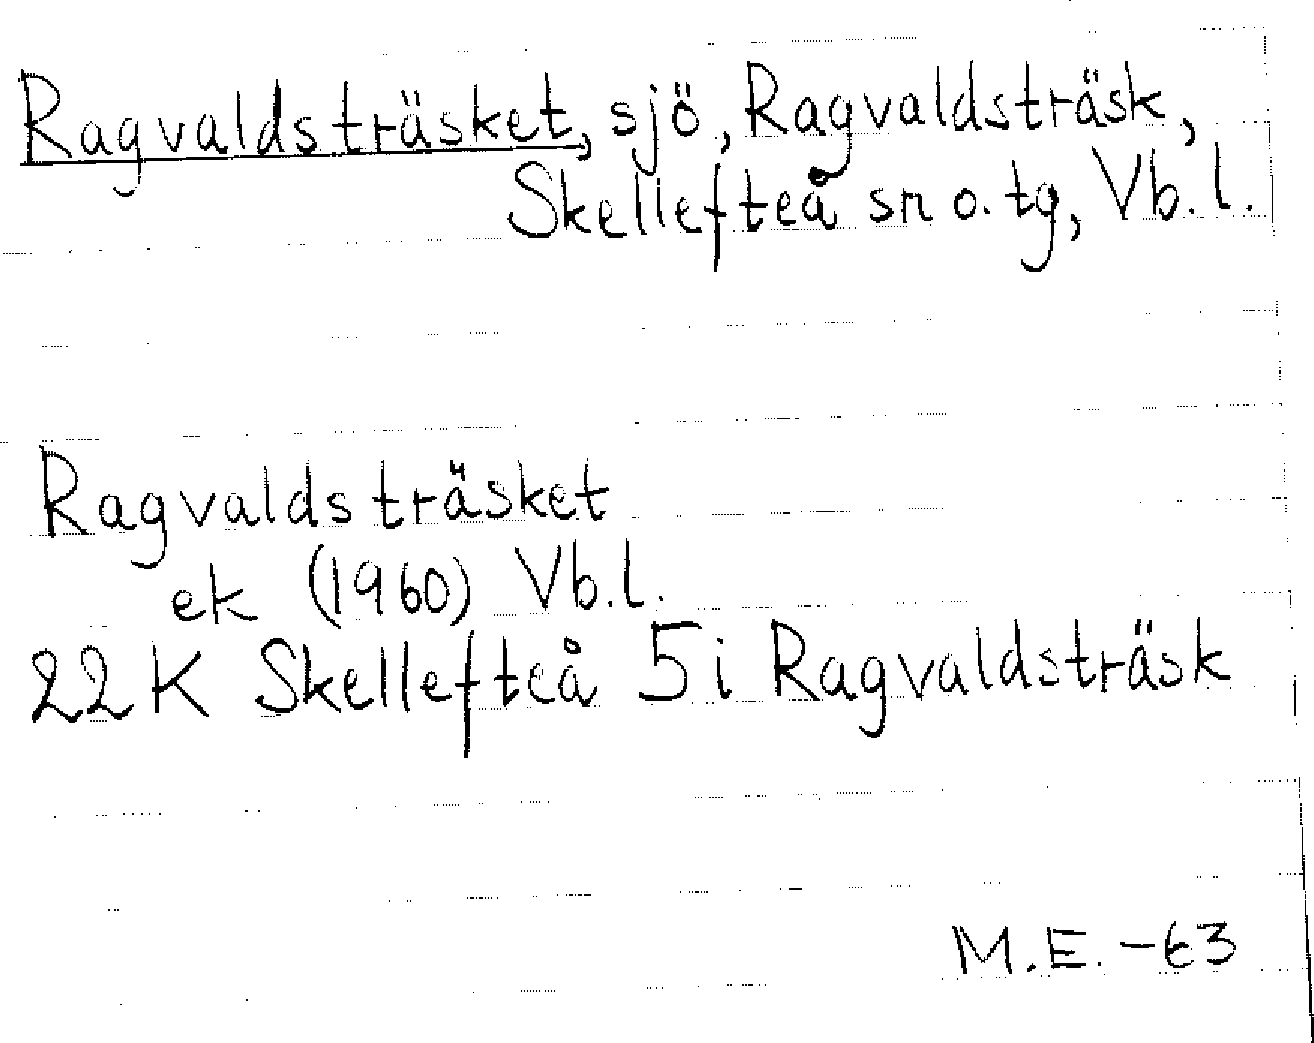 Ragvaldsträsket, sjö, Ragvaldsträsk,
Skellefteå sn o. tg, Vb. l.
Ragvaldsträsket
ek (1960) Vb. l.
22 K Skellefteå 5 i Ragvaldsträsk
M. E. -63